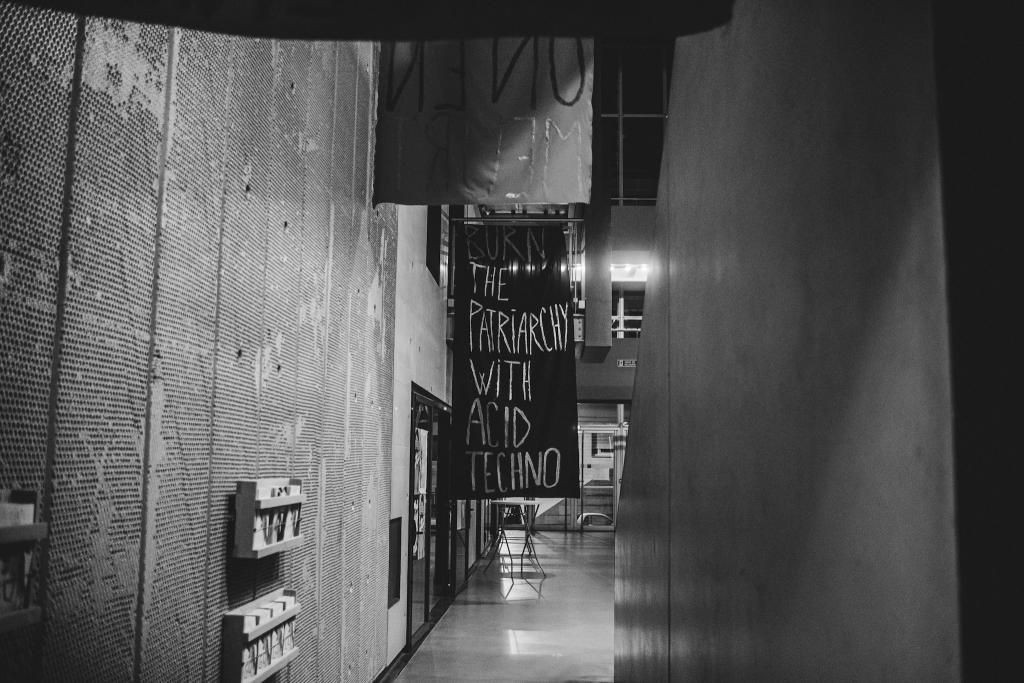 BURN
THE
PATRIARCHY
WITH
ACID
TECHNO